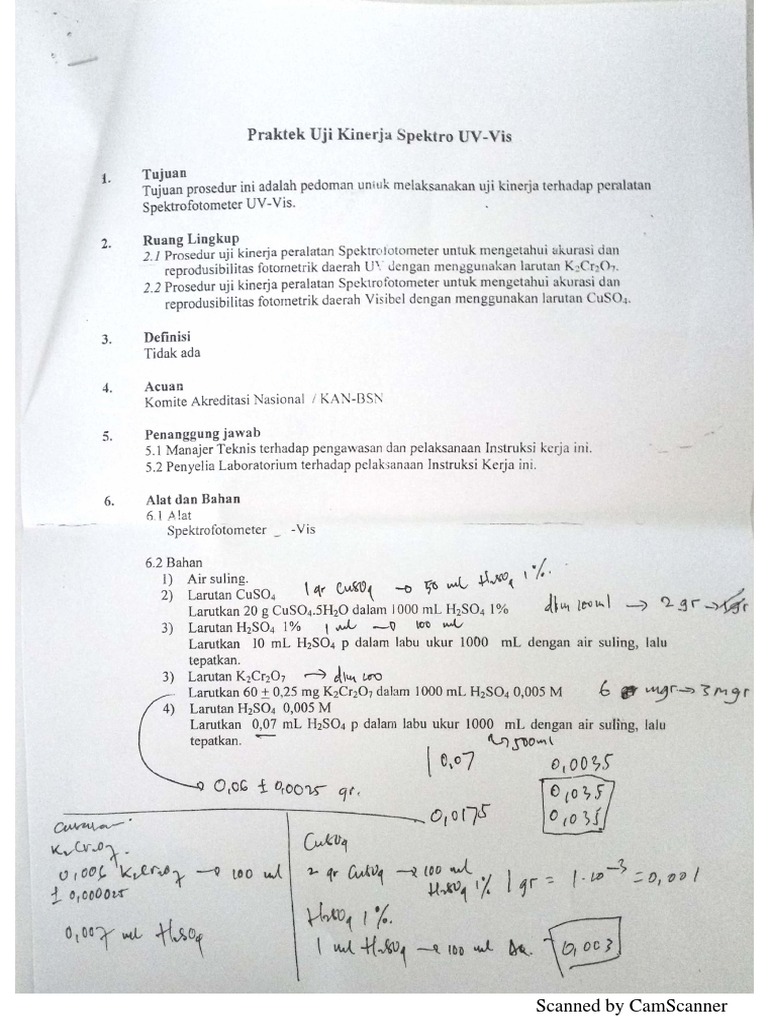 Praktek Uji Kinerja Spektro UV-Vis
1. Tujuan
Tujuan prosedur ini adalah pedoman untuk melaksanakan uji kinerja terhadap peralatan
Spektrofotometer UV-Vis.
2. Ruang Lingkup
2.1 Prosedur uji kinerja peralatan Spektrofotometer untuk mengetahui akurasi dan
reprodusibilitas fotometrik daerah UV dengan menggunakan larutan K₂Cr₂O₇.
2.2 Prosedur uji kinerja peralatan Spektrofotometer untuk mengetahui akurasi dan
reprodusibilitas fotometrik daerah Visibel dengan menggunakan larutan CuSO₄.
3. Definisi
Tidak ada
4. Acuan
Komite Akreditasi Nasional / KAN-BSN
5. Penanggung jawab
5.1 Manajer Teknis terhadap pengawasan dan pelaksanaan Instruksi kerja ini.
5.2 Penyelia Laboratorium terhadap pelaksanaan Instruksi Kerja ini.
6. Alat dan Bahan
6.1 Alat
Spektrofotometer -Vis
6.2 Bahan
1) Air suling.
2) Larutan CuSO₄ 1 gr CuSO₄ → 50 ml H₂SO₄ 1%.
Larutkan 20 g CuSO₄.5H2O dalam 1000 mL H₂SO₄ 1% dlm 100 ml → 2 gr → 1 gr
3) Larutan H₂SO₄ 1% 1 ml → 100 ml
Larutkan 10 mL H₂SO₄ p dalam labu ukur 1000 mL dengan air suling, lalu
tepatkan.
3) Larutan K₂Cr₂O₇ → dlm 100
Larutkan 60 ± 0,25 mg K₂Cr₂O₇ dalam 1000 mL H₂SO₄ 0,005 M 6 mgr → 3 mgr
4) Larutan H₂SO₄ 0,005 M
Larutkan 0,07 mL H₂SO₄ p dalam labu ukur 1000 mL dengan air suling, lalu
tepatkan. → 500 ml
0,07 0,0035
→ 0,06 ± 0,0025 gr. 0,035
0,0175 0,035
K₂Cr₂O₇.
0,006 K₂Cr₂O₇ → 100 ml
± 0,000025
0,007 ml H₂SO₄
CuSO₄
2 gr CuSO₄ → 100 ml
H₂SO₄ 1% 1 gr = 1·10⁻³ = 0,001
H₂SO₄ 1%.
1 ml H₂SO₄ → 100 ml 0,003
Scanned by CamScanner